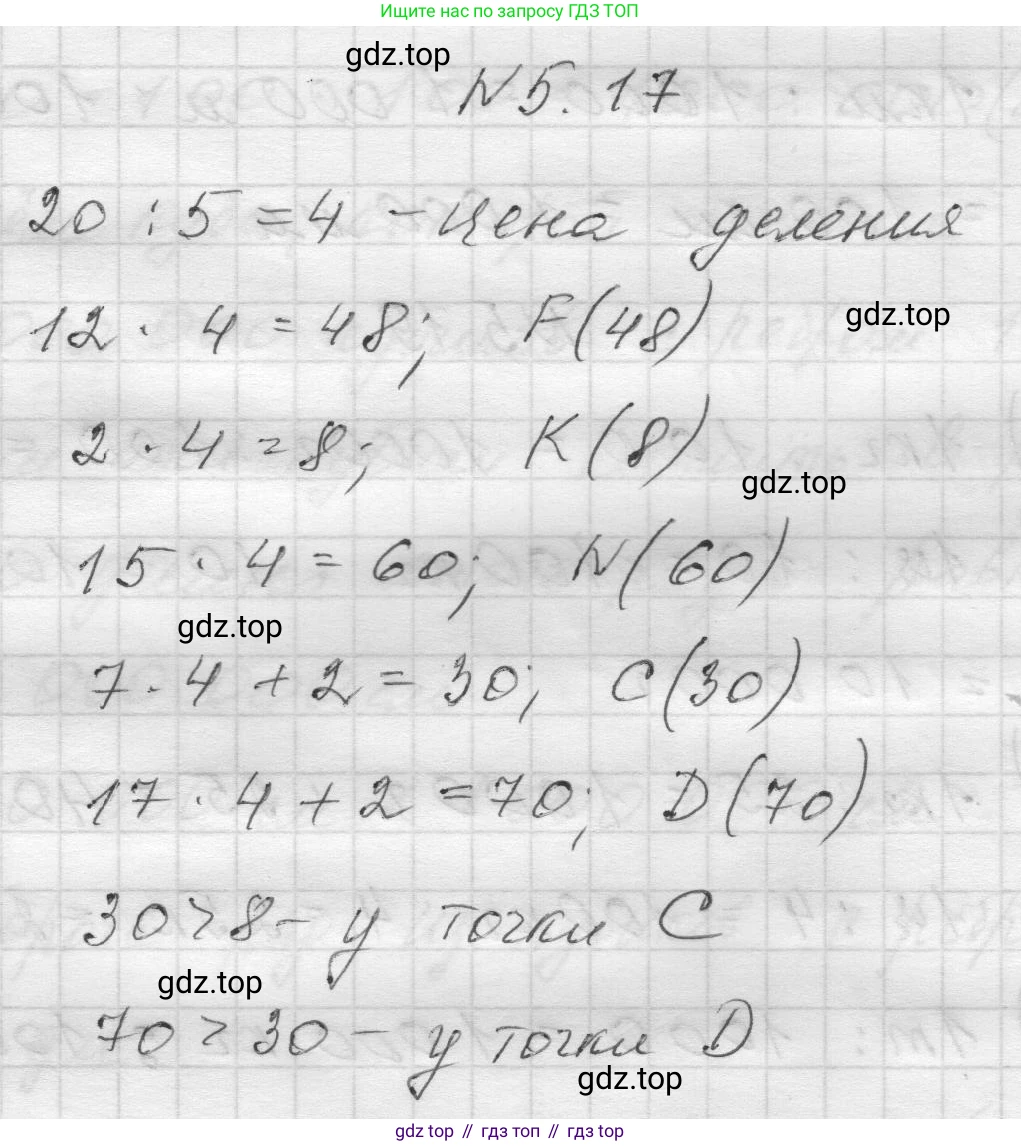 Ищите нас по запросу ГДЗ ТОП
gdz.top
N 5.17
20 : 5 = 4 - цена деления
12 · 4 = 48; F(48)
gdz.top
2 · 4 = 8; K(8)
gdz.top
15 · 4 = 60; N(60)
gdz.top
7 · 4 + 2 = 30; C(30)
17 · 4 + 2 = 70; D(70)
30 > 8 - у точки C
gdz.top
70 > 30 - у точки D
gdz.top
gdz top // гдз топ // гдз top